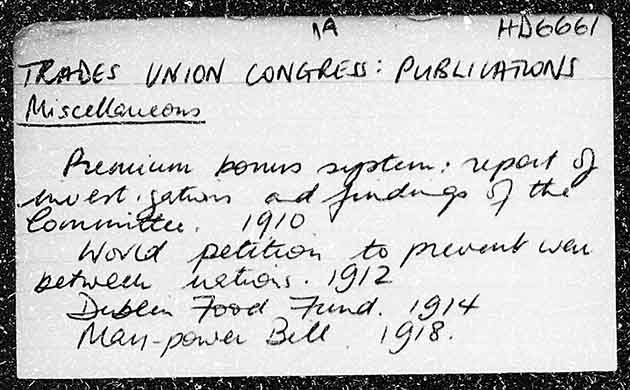 1A HD6661
TRADES UNION CONGRESS: PUBLICATIONS
Miscellaneous
Premium bonus system: report of
investigations and findings of the
Committee. 1910
World petition to prevent war
between nations. 1912
Dublin Food Fund. 1914
Man-power Bill. 1918.